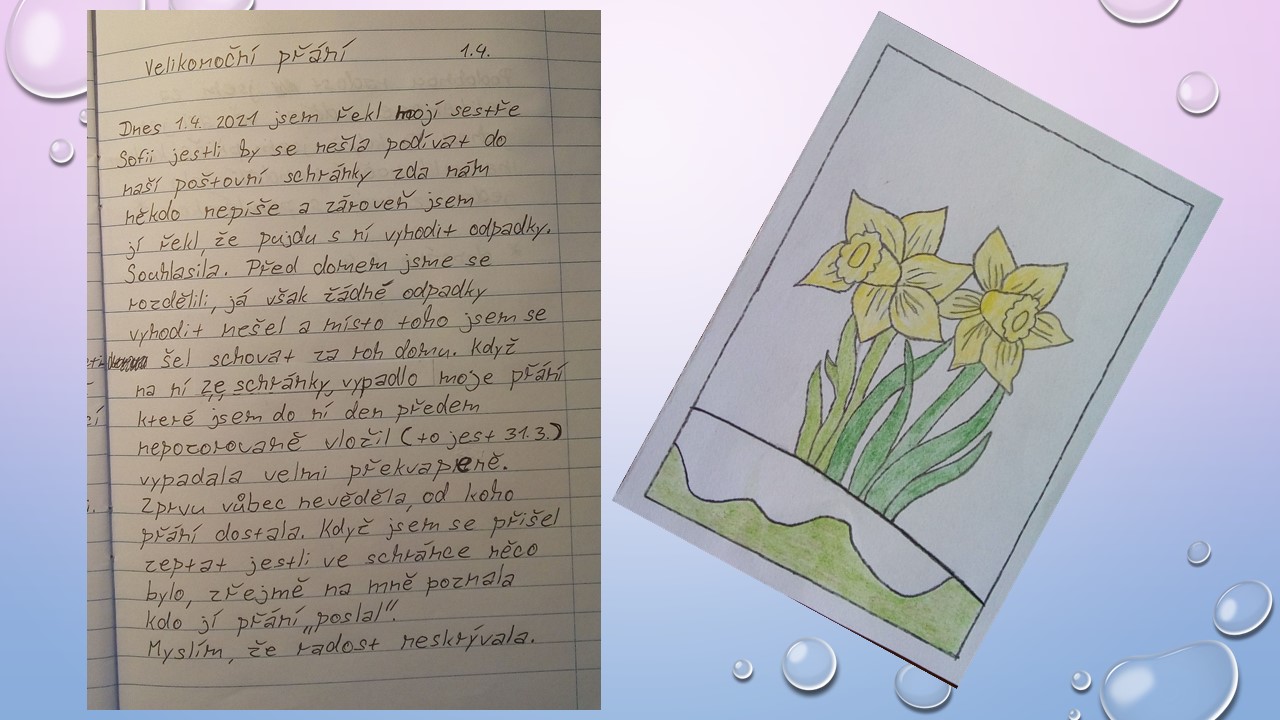 Velikonoční přání 1.4.
Dnes 1.4. 2021 jsem řekl mojí sestře
Sofii jestli by se nešla podívat do
naší poštovní schránky zda nám
někdo nepíše a zároveň jsem
jí řekl, že pujdu s ní vyhodit odpadky.
Souhlasila. Před domem jsme se
rozdělili, já však žádné odpadky
vyhodit nešel a místo toho jsem se
šel schovat za roh domu. Když
na ní ze schránky vypadlo moje přání
které jsem do ní den předem
nepozorovaně vložil (to jest 31.3.)
vypadala velmi překvapeně.
Zprvu vůbec nevěděla, od koho
přání dostala. Když jsem se přišel
zeptat jestli ve schránce něco
bylo, zřejmě na mně poznala
kdo jí přání „poslal“.
Myslím, že radost neskrývala.